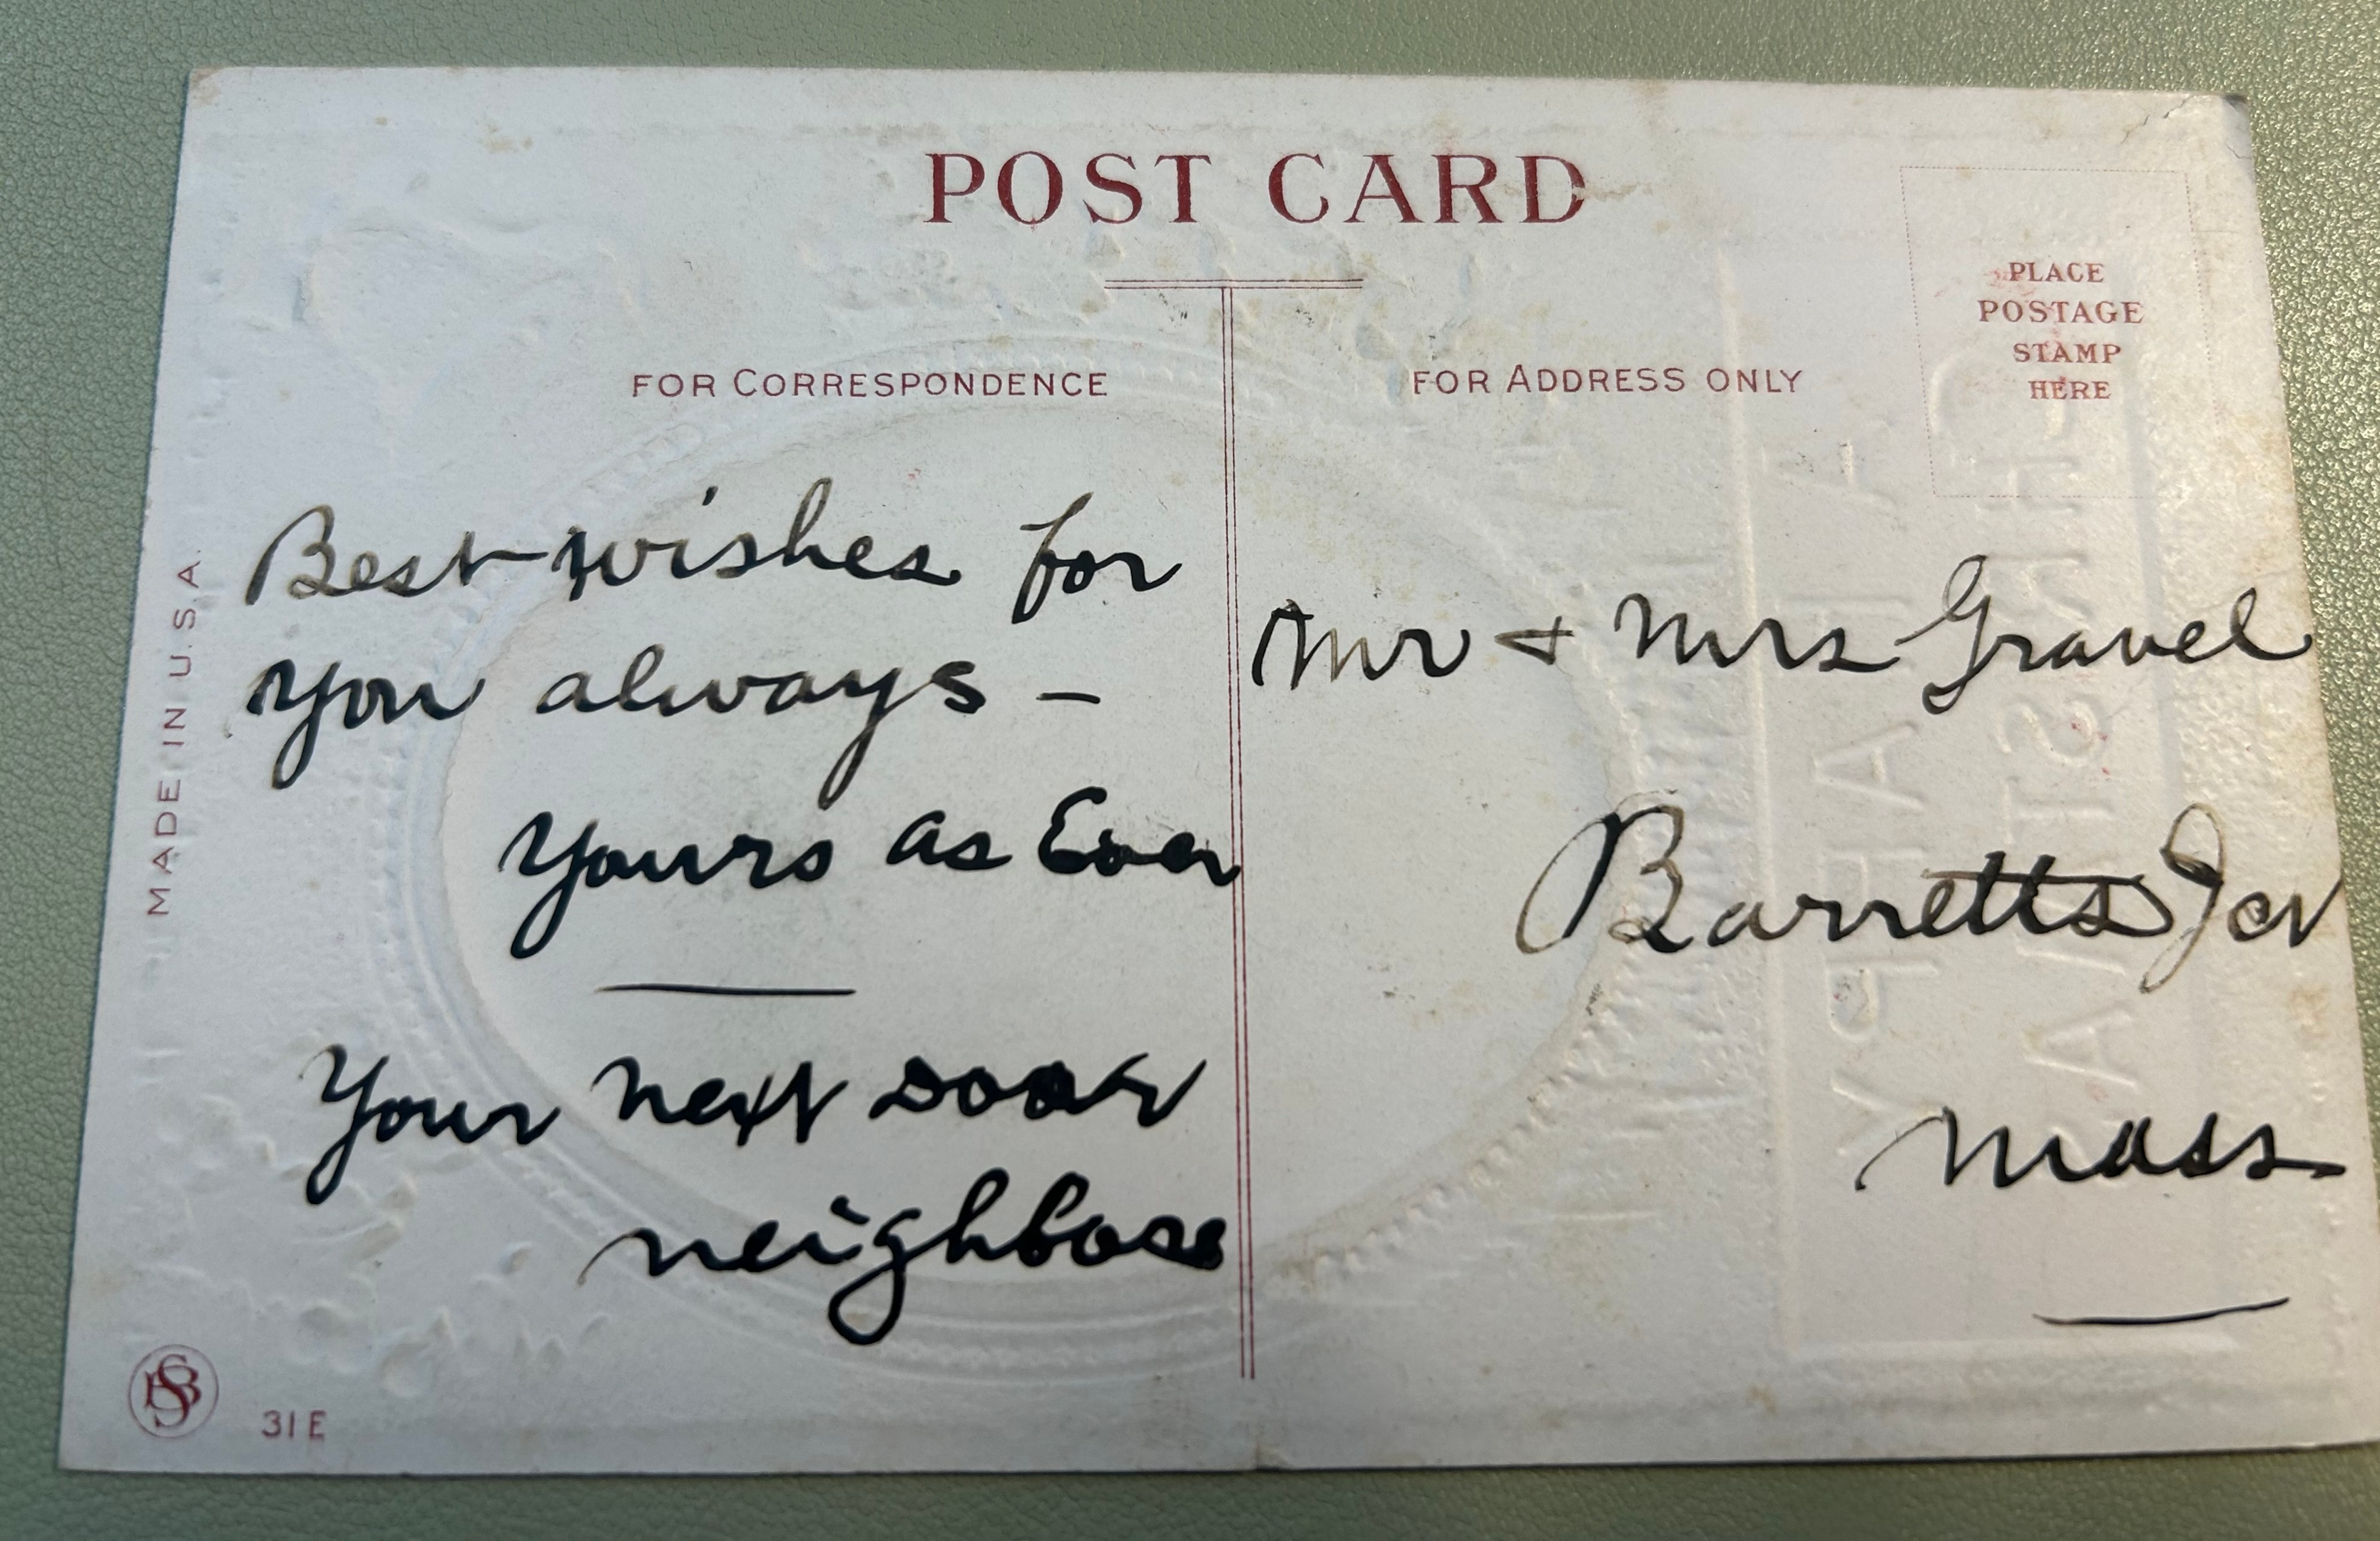 POST CARD
FOR CORRESPONDENCE
FOR ADDRESS ONLY
PLACE
POSTAGE
STAMP
HERE
MADE IN U.S.A.
Best wishes for
you always –
yours as Ever
Your next door
neighbors
Mr + Mrs Gravel
Barretts Jct
Mass
31 E